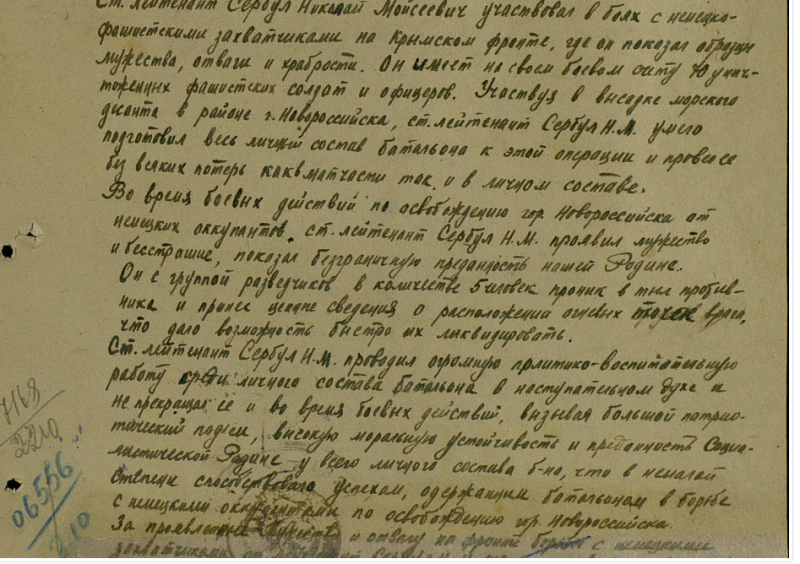 Ст. лейтенант Сербул Николай Моисеевич участвовал в боях с немецко-
фашистскими захватчиками на Крымском фронте, где он показал образцы
мужества, отваги и храбрости. Он имеет на своем боевом счету 40 унич-
тоженных фашистских солдат и офицеров. Участвуя в высадке морского
десанта в районе г. Новороссийска, ст. лейтенант Сербул Н.М. умело
подготовил весь личный состав батальона к этой операции и провел ее
без всяких потерь как в матчасти так и в личном составе.
Во время боевых действий по освобождению гор. Новороссийска от
немецких оккупантов, ст. лейтенант Сербул Н.М. проявил мужество
и бесстрашие, показал безграничную преданность нашей Родине.
Он с группой разведчиков в количестве 5 человек проник в тыл против-
ника и принес ценные сведения о расположении огневых точек врага,
что дало возможность быстро их ликвидировать.
Ст. лейтенант Сербул Н.М. проводил огромную политико-воспитательную
работу среди личного состава батальона в наступательном духе и
не прекращая её и во время боевых действий, вызывая большой патрио-
тический подъем, высокую моральную устойчивость и преданность Социа-
листической Родине у всего личного состава б-на, что в немалой
степени способствовало успехам, одержанным батальоном в борьбе
с немецкими оккупантами по освобождению гор. Новороссийска.
За проявленные мужество и отвагу на фронте борьбы с немецкими
захватчиками
7168
2210
06556
210